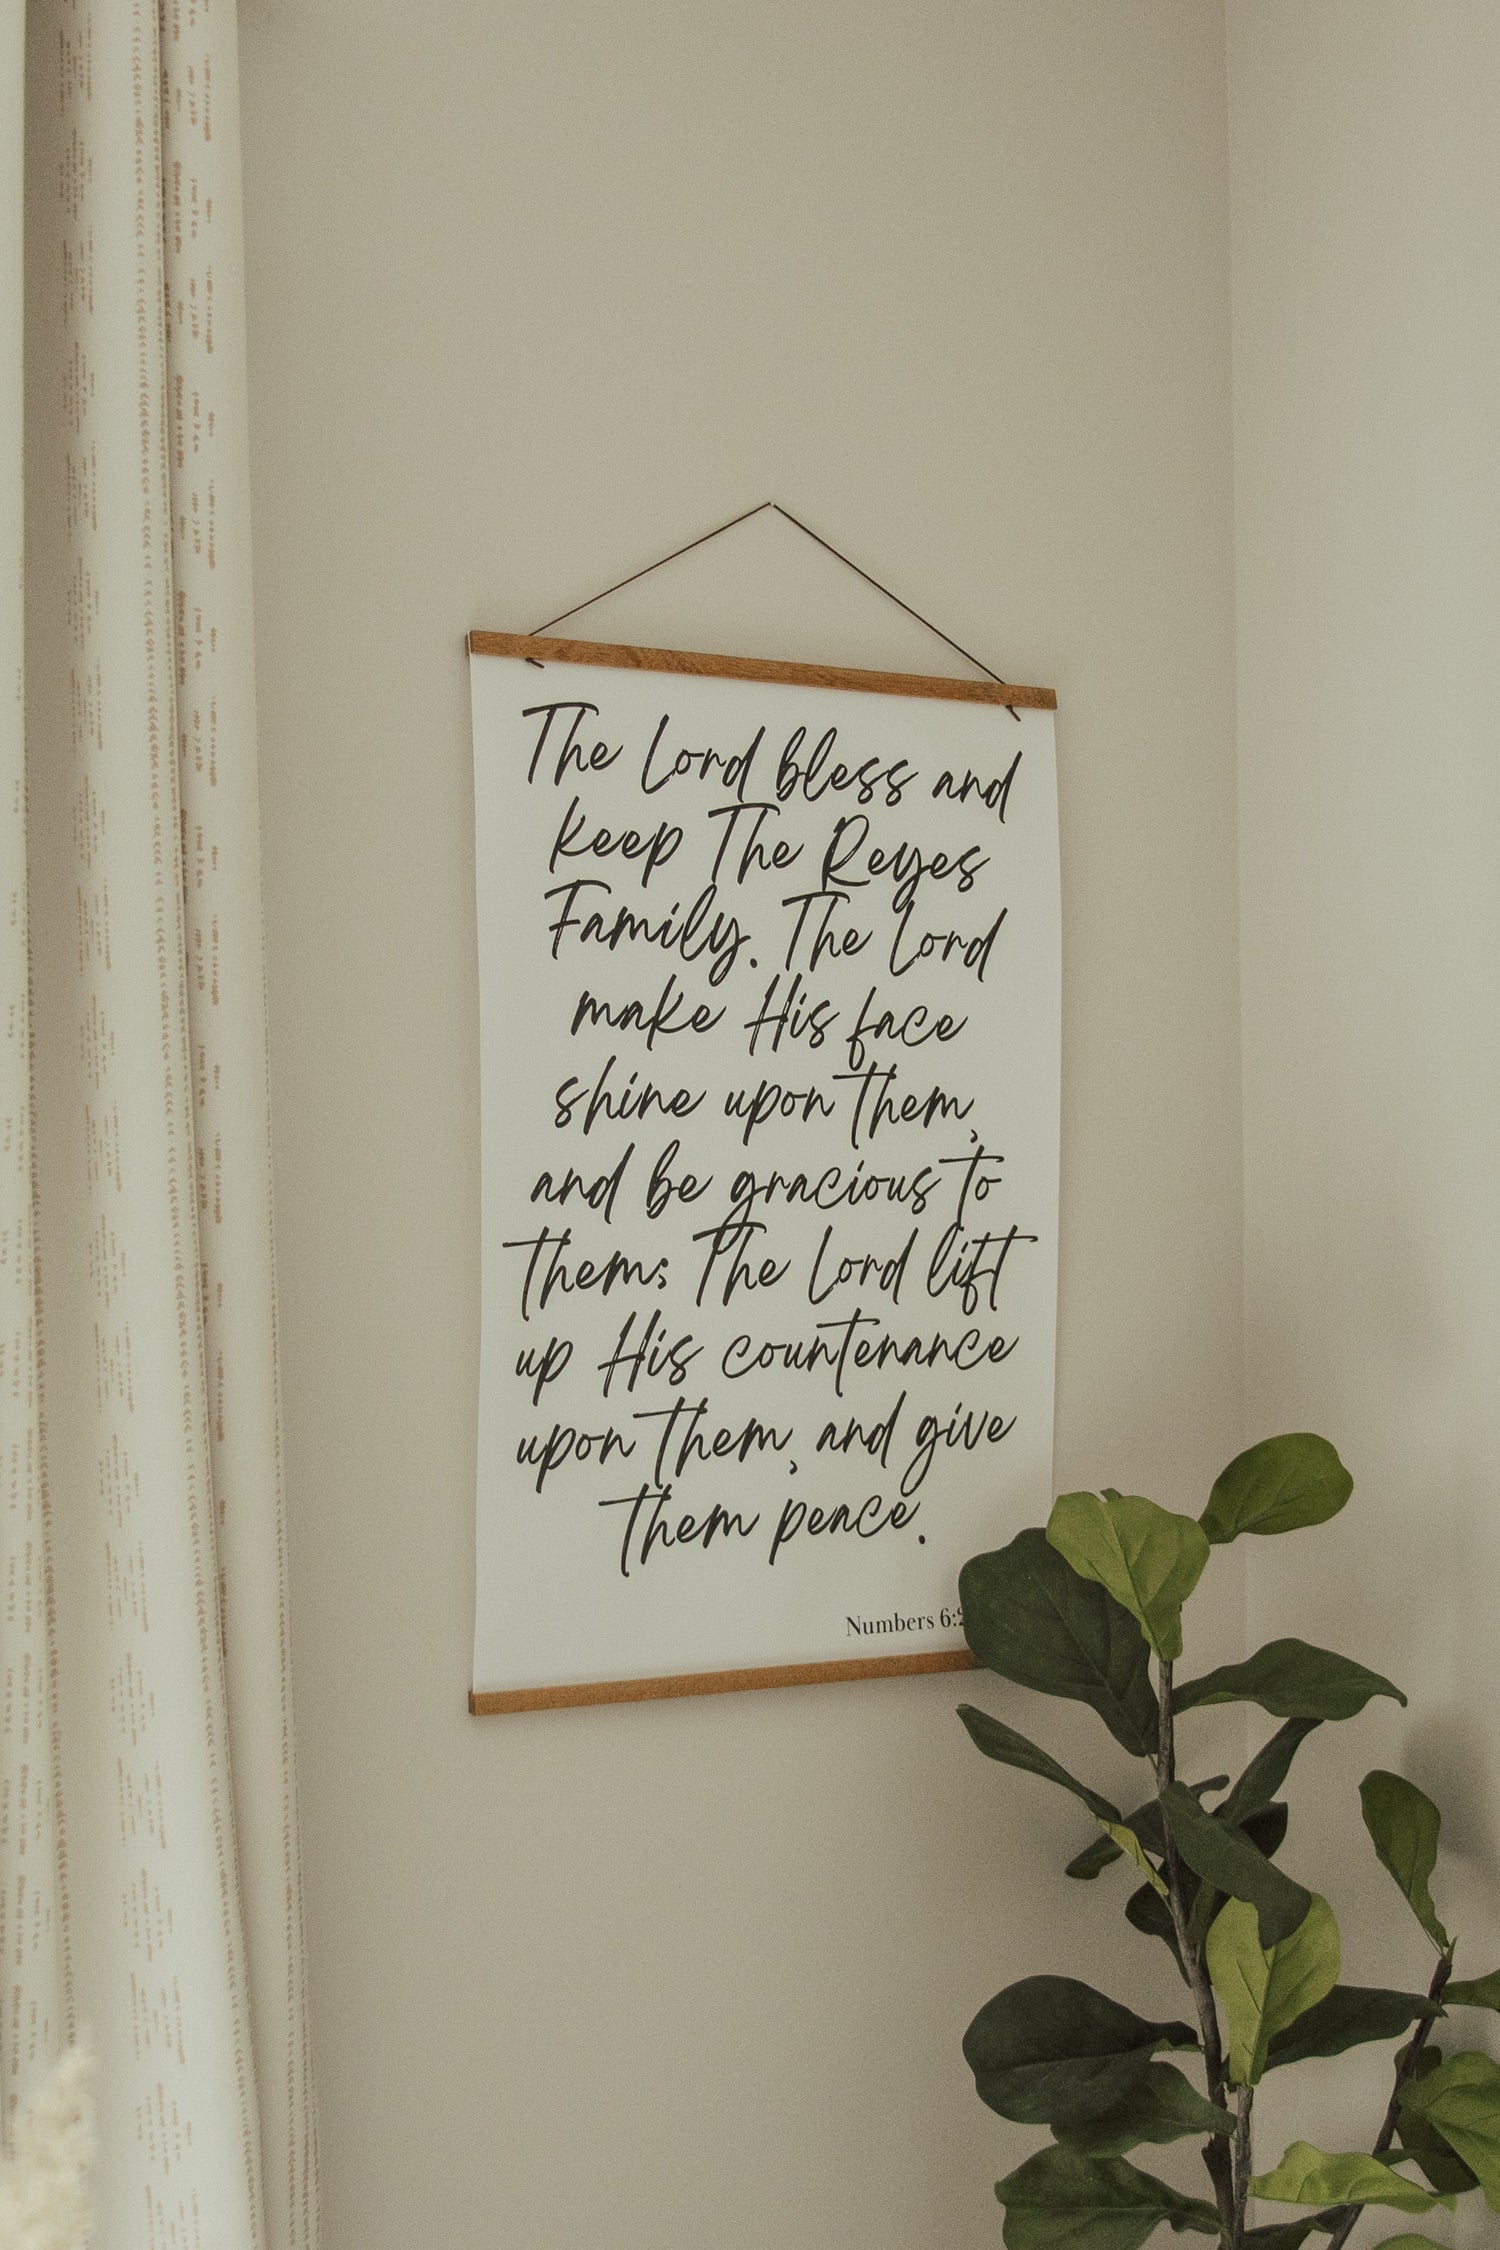 The Lord bless and
keep The Reyes
Family. The Lord
make His face
shine upon them,
and be gracious to
them; The Lord lift
up His countenance
upon them, and give
them peace.
Numbers 6:2